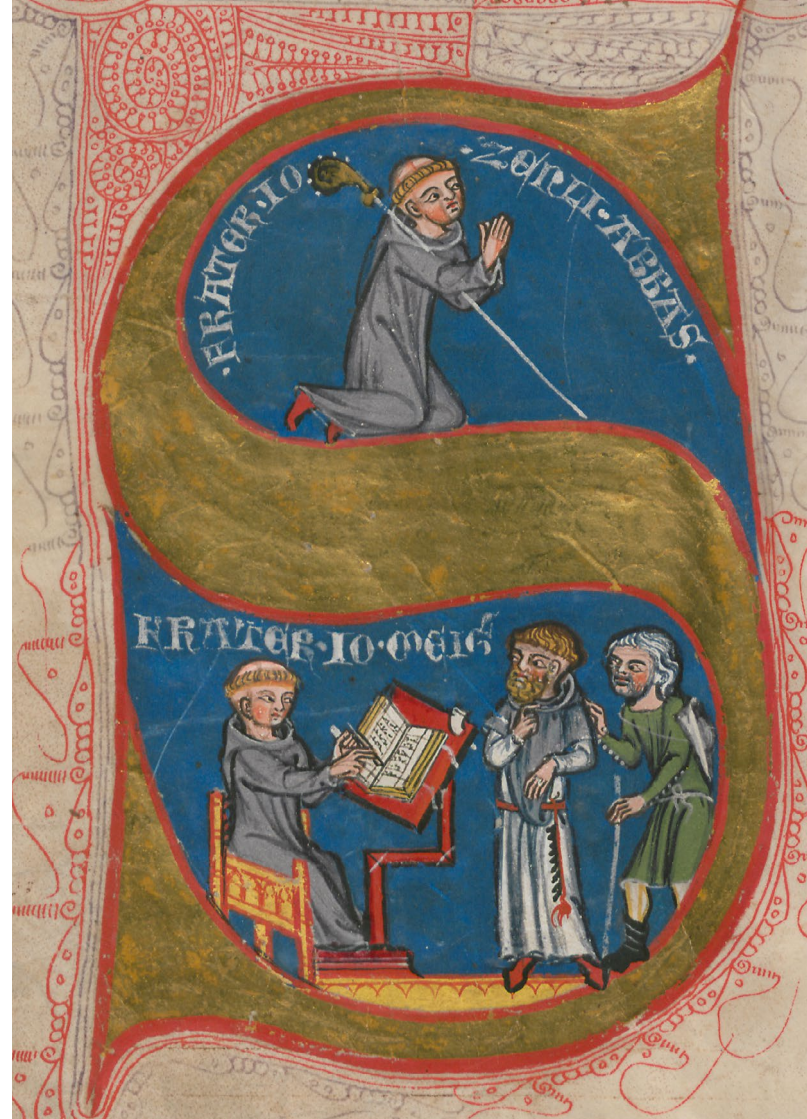 ·FRATER·IO·ZERLI·ABBAS·
FRATER·IO·MEIC̄